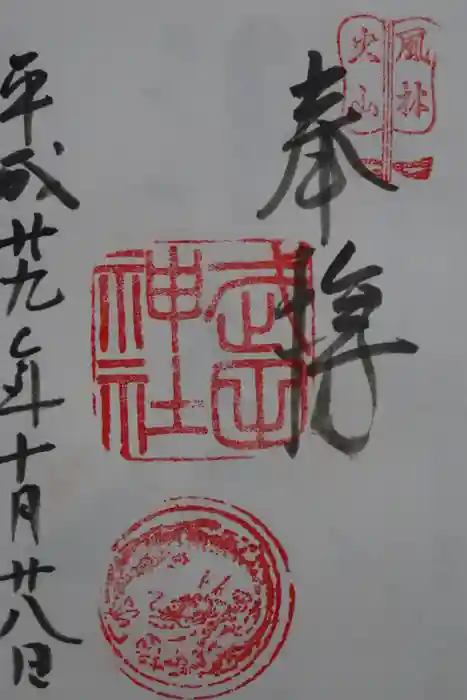 奉拝
風林
火山
武田
神社
平成廿九年十月廿八日